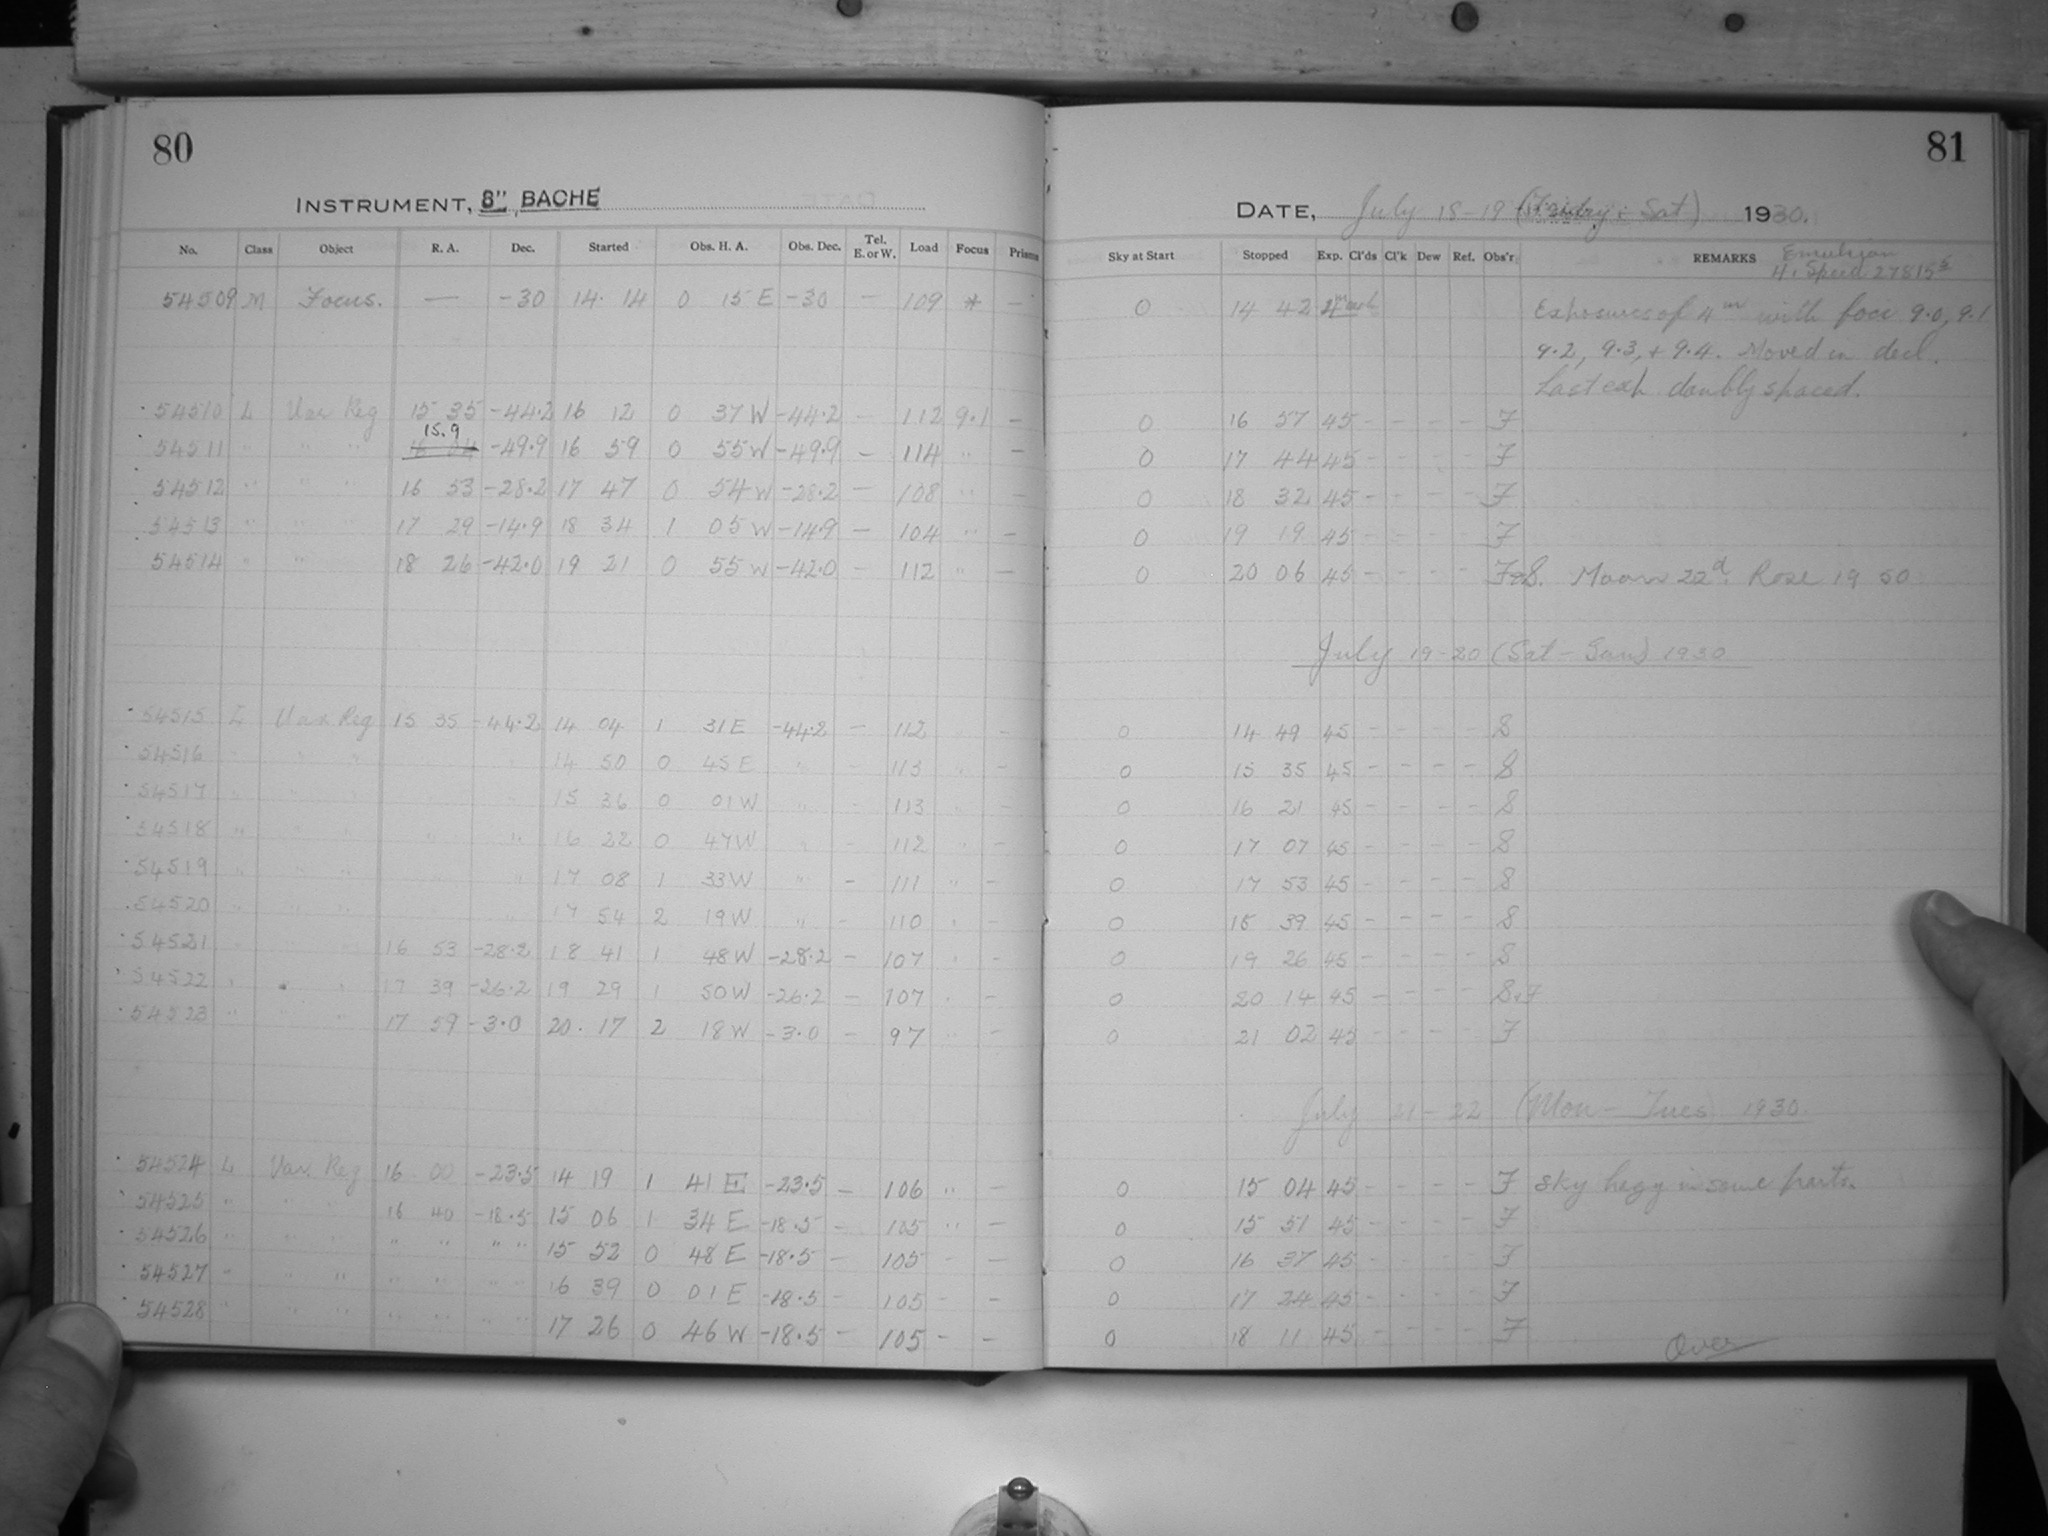 80
INSTRUMENT, 8" BACHE
No. Class Object R. A. Dec. Started Obs. H. A. Obs. Dec. Tel. E. or W. Load Focus Prisms
54509 M Focus. — -30 14 14 0 15 E -30 — 109 * —
54510 L Var Reg 15 35 -44.2 16 12 0 37 W -44.2 — 112 9.1 —
15.9
54511 " " " -49.9 16 59 0 55 W -49.9 — 114 " —
54512 " " " 16 53 -28.2 17 47 0 54 W -28.2 — 108 " —
54513 " " " 17 29 -14.9 18 34 1 05 W -14.9 — 104 " —
54514 " " 18 26 -42.0 19 21 0 55 W -42.0 — 112 " —
54515 L Var Reg 15 35 -44.2 14 04 1 31 E -44.2 — 112 —
54516 " " " 14 50 0 45 E " — 113 " —
54517 " " 15 36 0 01 W " — 113 " —
54518 " " " " " 16 22 0 47 W " — 112 " —
54519 " " " " 17 08 1 33 W " — 111 " —
54520 " " " " 17 54 2 19 W " — 110 " —
54521 16 53 -28.2 18 41 1 48 W -28.2 — 107 " —
54522 " " " 17 39 -26.2 19 29 1 50 W -26.2 — 107 " —
54523 " " " 17 59 -3.0 20 17 2 18 W -3.0 — 97 " —
54524 L Var. Reg 16 00 -23.5 14 19 1 41 E -23.5 — 106 " —
54525 " " " 16 40 -18.5 15 06 1 34 E -18.5 — 105 " —
54526 " " " " " " " 15 52 0 48 E -18.5 — 105 — —
54527 " " " " " " " 16 39 0 01 E -18.5 — 105 — —
54528 " " " " " " " 17 26 0 46 W -18.5 — 105 — —
81
DATE, July 18-19 Sat) 1930.
Sky at Start Stopped Exp. Cl'ds Cl'k Dew Ref. Obs'r. REMARKS Emulsion
Hi Speed 27815
0 14 42 4m each Exposures of 4m with foci 9.0, 9.1
9.2, 9.3, + 9.4. Moved in decl.
Last exp. doubly spaced.
0 16 57 45 - - - - F
0 17 44 45 - - - - F
0 18 32 45 - - - - F
0 19 19 45 - - - - F
0 20 06 45 - - - - F+S. Moon 22d. Rose 19 50
July 19-20 (Sat - Sun) 1930
0 14 49 45 - - - - S
0 15 35 45 - - - - S
0 16 21 45 - - - - S
0 17 07 45 - - - - S
0 17 53 45 - - - - S
0 18 39 45 - - - - S
0 19 26 45 - - - - S
0 20 14 45 - - - - S+F
0 21 02 45 - - - - F
July 21-22 (Mon - Tues) 1930
0 15 04 45 - - - - F Sky hazy in some parts.
0 15 51 45 - - - - F
0 16 37 45 - - - - F
0 17 24 45 - - - - F
0 18 11 45 - - - - F
Over